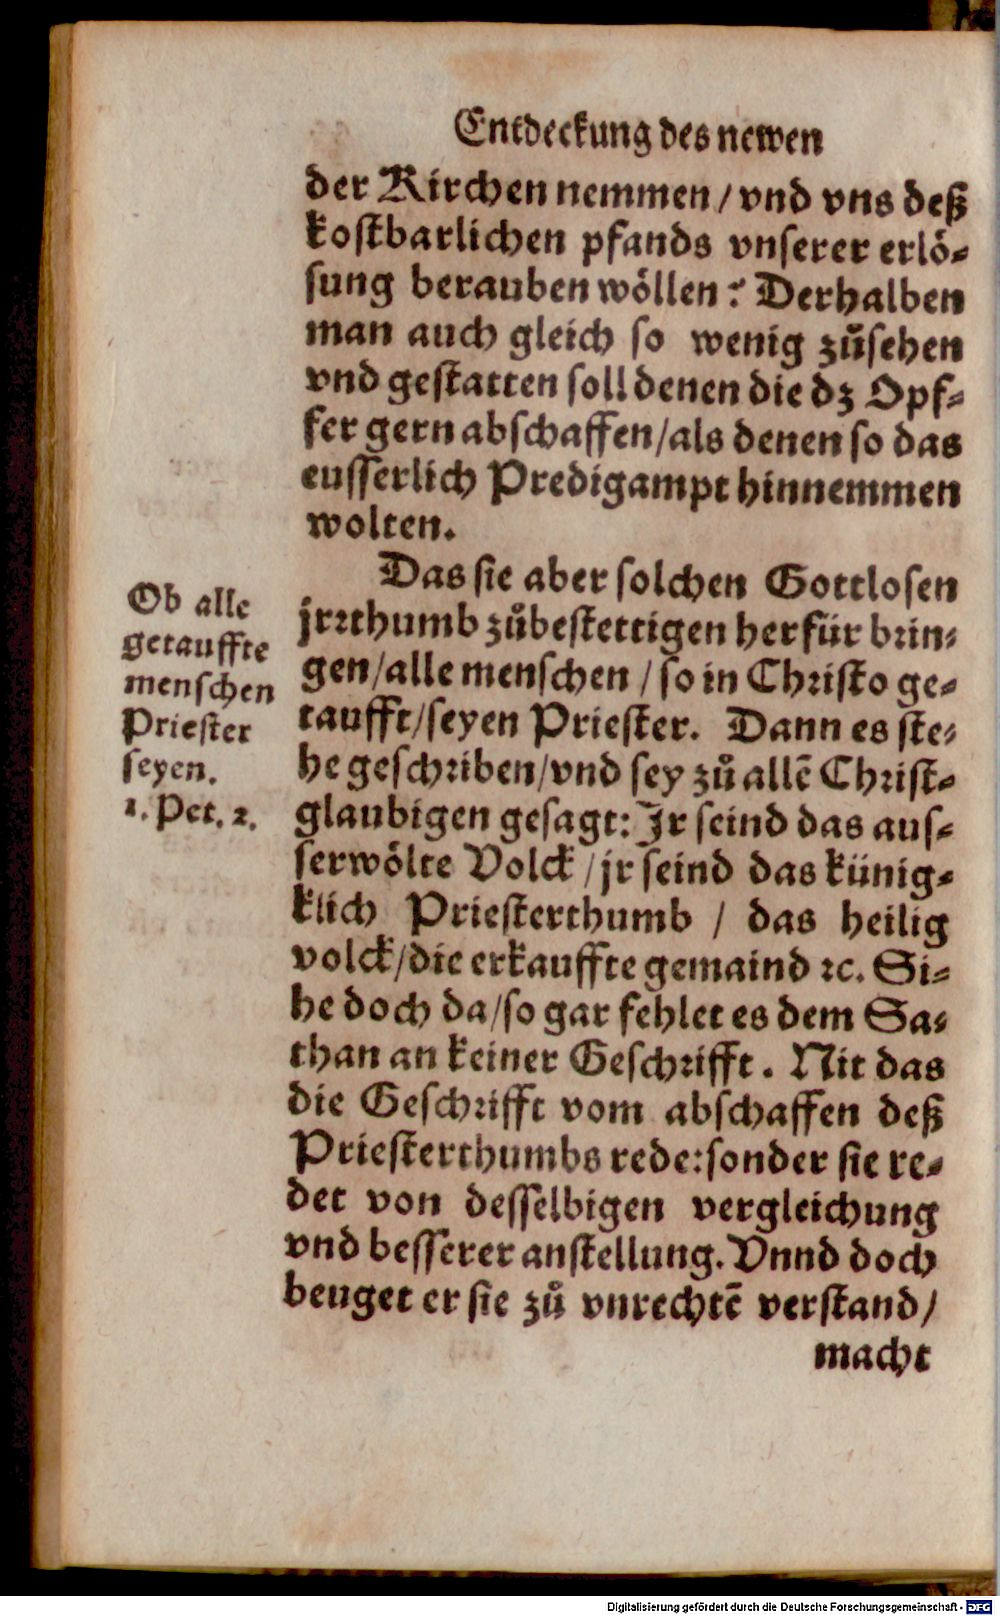 Entdeckung des newen
der Kirchen nemmen / vnd vns deß
kostbarlichen pfands vnserer erlö-
sung berauben wöllen? Derhalben
man auch gleich so wenig zůsehen
vnd gestatten soll denen die dz Opf-
fer gern abschaffen/als denen so das
eusserlich Predigampt hinnemmen
wolten.
Das sie aber solchen Gottlosen
jrrthumb zůbestettigen herfür brin-
gen/alle menschen / so in Christo ge-
taufft/seyen Priester. Dann es ste-
he geschriben/vnd sey zů allē Christ-
glaubigen gesagt: Jr seind das aus-
serwölte Volck / jr seind das künig-
klich Priesterthumb / das heilig
volck/die erkauffte gemaind ꝛc. Si-
he doch da/so gar fehlet es dem Sa-
than an keiner Geschrifft. Nit das
die Geschrifft vom abschaffen deß
Priesterthumbs rede: sonder sie re-
det von desselbigen vergleichung
vnd besserer anstellung. Vnnd doch
beuget er sie zů vnrechtē verstand/
macht
Ob alle
getauffte
menschen
Priester
seyen.
1. Pet. 2.
Digitalisierung gefördert durch die Deutsche Forschungsgemeinschaft - DFG